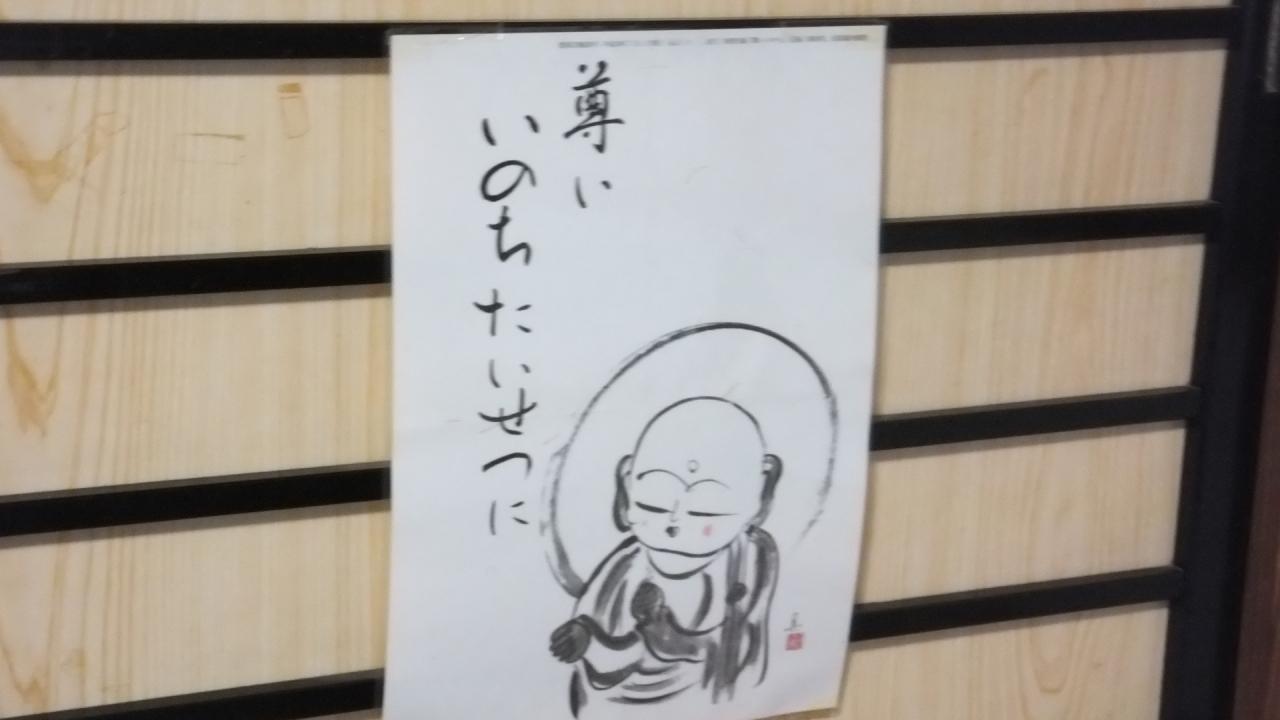 尊い
いのち たいせつに